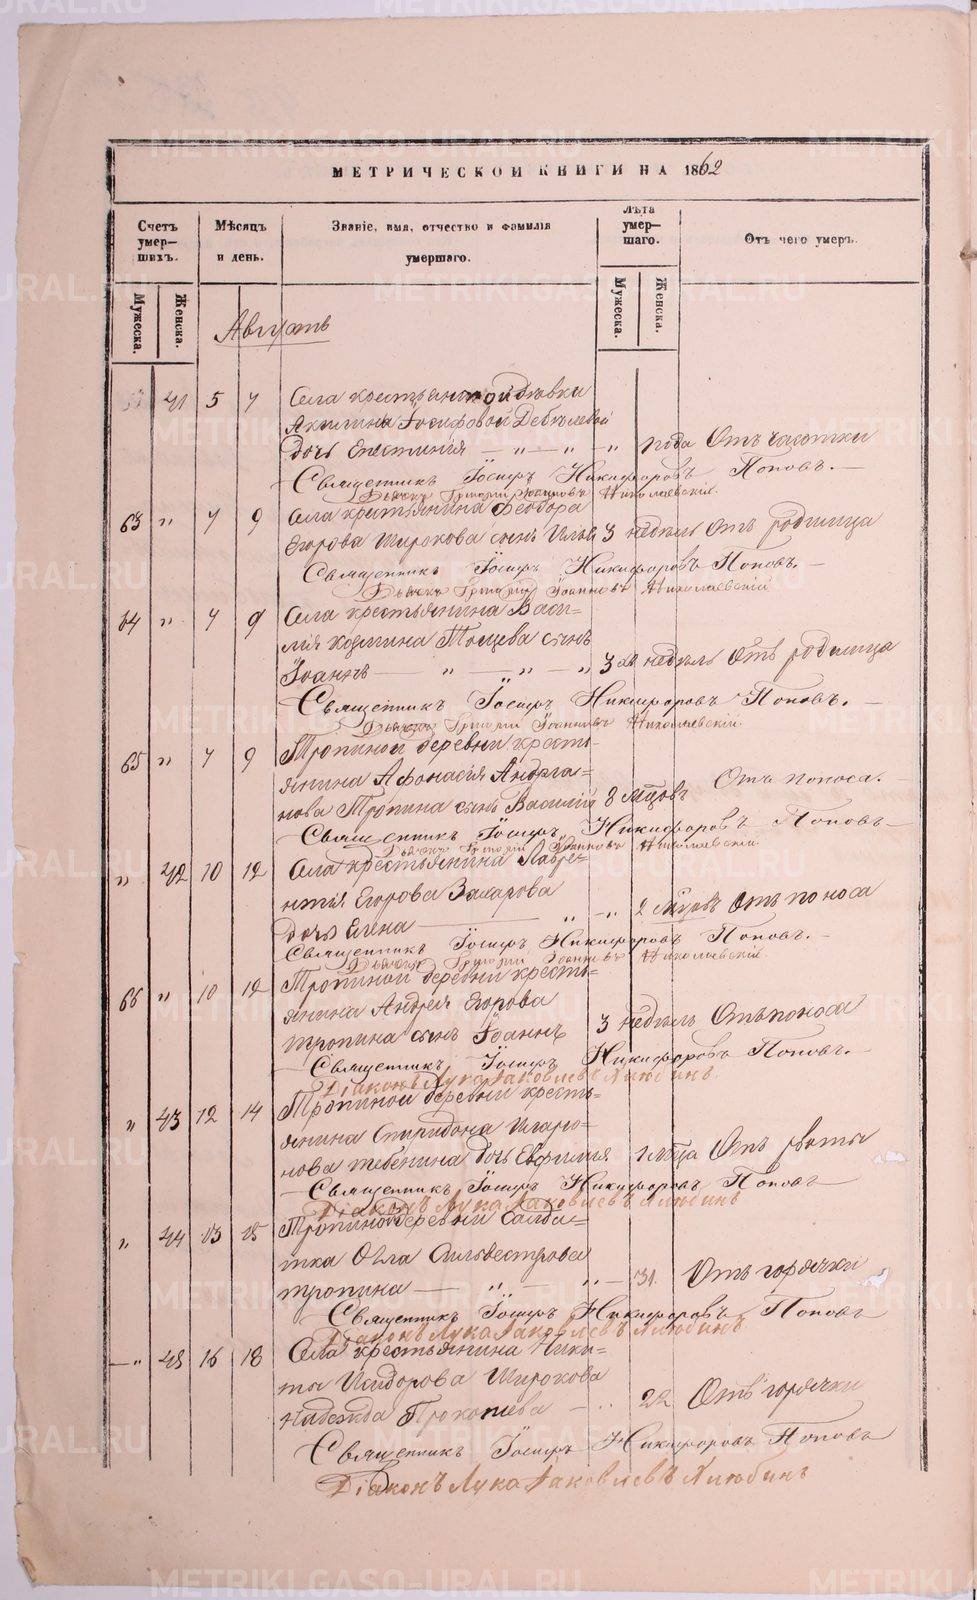 МЕТРИЧЕСКОЙ КНИГИ НА 1862
Счетъ умер—шихъ.
Мѣсяцъ и день.
Званіе, имя, отчество и фамилія умершаго.
Лѣта умер—шаго.
Отъ чего умеръ.
Мужеска.
Женска.
Мужеска.
Женска.
Августъ
41 5 7 Села крестьянской дѣвки
Акилины Іосифовой
дочь — „ — „ — „ года Отъ чахотки
Священникъ Іосифъ Никифоровъ Поповъ.—
Дьячекъ Григорій Іоанновъ Николаевскій.
63 „ 7 9 Села крестьянина Феодора
Егорова Широкова сынъ Илья 3 недѣль Отъ родимца
Священникъ Іосифъ Никифоровъ Поповъ.—
Дьячекъ Григорій Іоанновъ Николаевскій
64 „ 7 9 Села крестьянина Васи=
лія Козмина сынъ
Іоаннъ — „ — „ — „ 3 недѣль Отъ родимца
Священникъ Іосифъ Никифоровъ Поповъ.—
Дьячекъ Григорій Іоанновъ Николаевскій.
65 „ 7 9 Тропиной деревни кресть=
янина Афонасія Андреа=
нова Тропина сынъ Василій 8 мѣсцовъ Отъ поноса.
Священникъ Іосифъ Никифоровъ Поповъ—
Дьячекъ Григорій Іоанновъ Николаевскій.
„ 42 10 12 Села крестьянина Лавре=
нтія Егорова Захарова
дочь Елена — „ — „ 2 мѣсцовъ Отъ поноса
Священникъ Іосифъ Никифоровъ Поповъ.—
Дьячекъ Григорій Іоанновъ Николаевскій.
66 „ 10 12 Тропиной деревни кресть=
янина Андрея Егорова
Тропина сынъ Іоаннъ 3 недѣль Отъ поноса
Священникъ Іосифъ Никифоровъ Поповъ.—
Діаконъ Лука Іаковлевъ Хлюбинъ.
„ 43 12 14 Тропиной деревни кресть=
янина Спиридона
нова дочь Евфимия 1 мѣсца Отъ рвоты
Священникъ Іосифъ Никифоровъ Поповъ
Діаконъ Лука Іаковлевъ Хлюбинъ
„ 44 13 15 Тропиной деревни Солда=
тка Олга Сильвестрова
Тропина — „ — „ — 31. Отъ горячки
Священникъ Іосифъ Никифоровъ Поповъ
Діаконъ Лука Іаковлевъ Хлюбинъ
— „ 45 16 18 Села крестьянина Ники=
ты Исидорова Широкова
Надежда Прокопьева — 22 Отъ горячки
Священникъ Іосифъ Никифоровъ Поповъ
Діаконъ Лука Іаковлевъ Хлюбинъ
METRIKI.GASO-URAL.RU